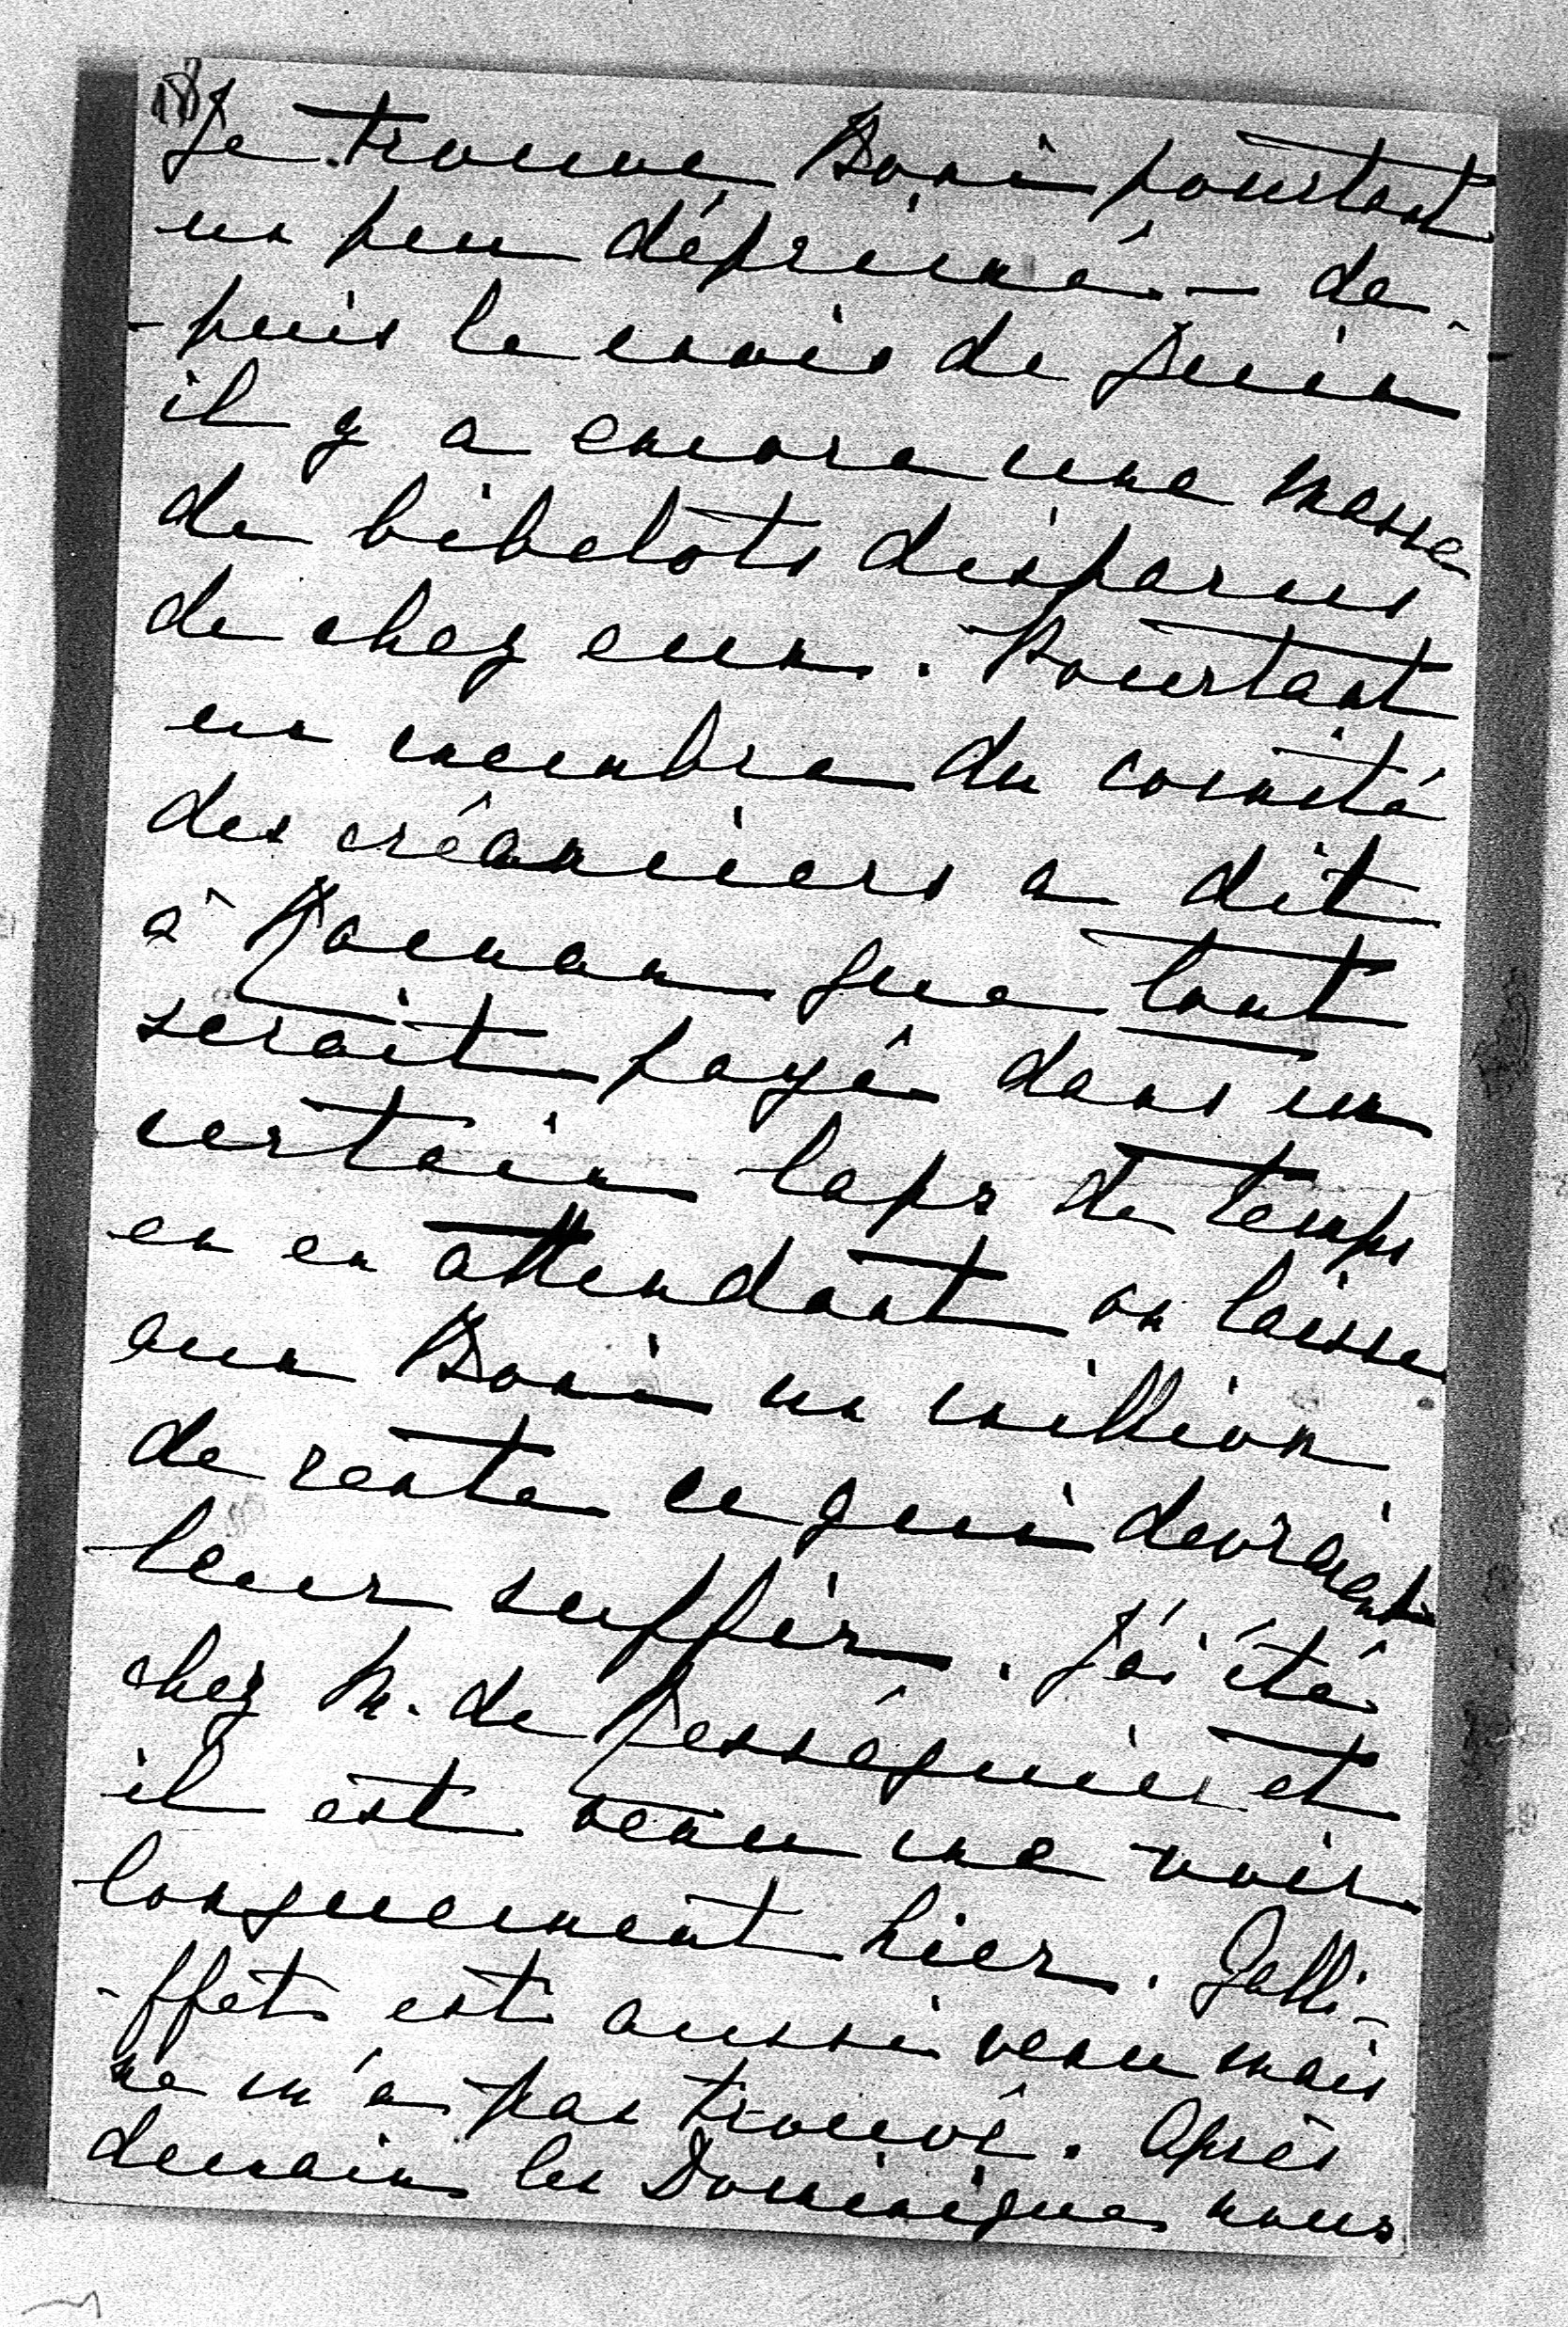 Je trouve Boni pourtant
un peu déprimé. — de-
-puis le mois de Juin
il y a encore une masse
de bibelots disparus
de chez eux. Pourtant
un membre du comité
des créanciers a dit
à que tout
serait payé dans un
certain laps de temps
en en attendant on laisse
aux Boni un million
de rente ce qui devraient
leur suffir. J'ai été
chez M. de et
il est venu me voir
longuement hier. Galli-
-ffet est aussi venu mais
ne m'a pas trouvé. Après
demain les Dominique nous